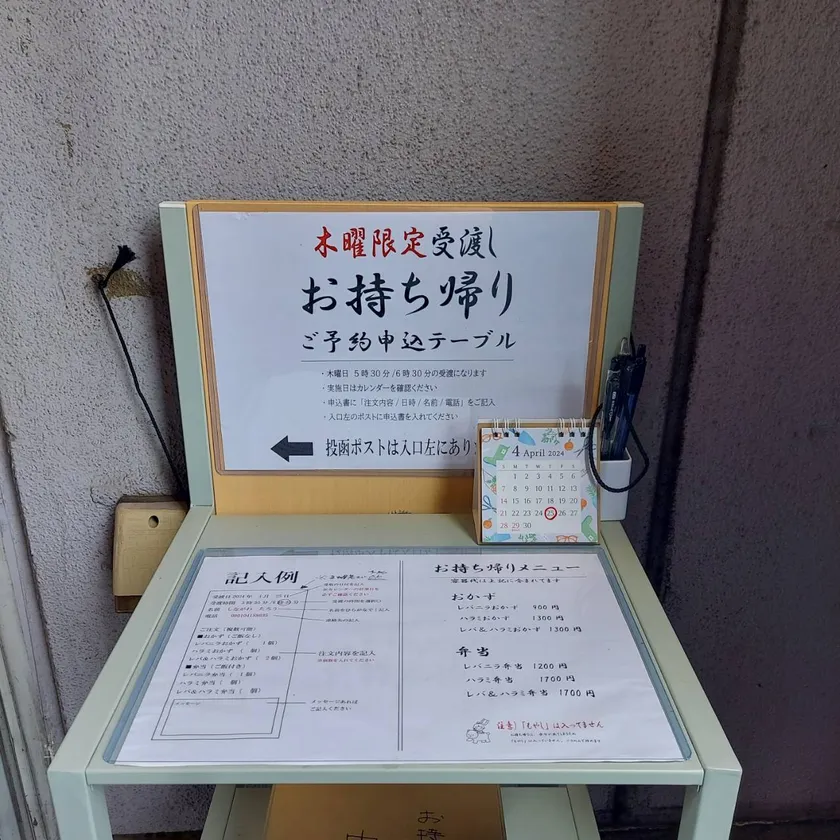 木曜限定受渡し
お持ち帰り
ご予約申込テーブル
・木曜日 5時30分/6時30分の受渡になります
・実施日はカレンダーを確認ください
・申込書に「注文内容/日時/名前/電話」をご記入
・入口左のポストに申込書を入れてください
投函ポストは入口左にあり
4 April 2024
S M T W T F S
1 2 3 4 5 6
7 8 9 10 11 12 13
14 15 16 17 18 19 20
21 22 23 24 25 26 27
28 29 30
記入例
名前 しながわ たろう
電話
ご注文（複数可能）
■おかず（ご飯なし）
レバニラおかず（ 1個）
ハラミおかず（ 個）
レバ&ハラミおかず（ 2個）
■弁当（ご飯付き）
レバニラ弁当（ 1個）
ハラミ弁当（ 個）
レバ&ハラミ弁当（ 個）
メッセージ
注文内容を記入
メッセージあれば
ご記入ください
お持ち帰りメニュー
容器代は上記に含まれてます
おかず
レバニラおかず 900円
ハラミおかず 1300円
レバ&ハラミおかず 1300円
弁当
レバニラ弁当 1200円
ハラミ弁当 1700円
レバ&ハラミ弁当 1700円
注意）「もやし」は入ってません